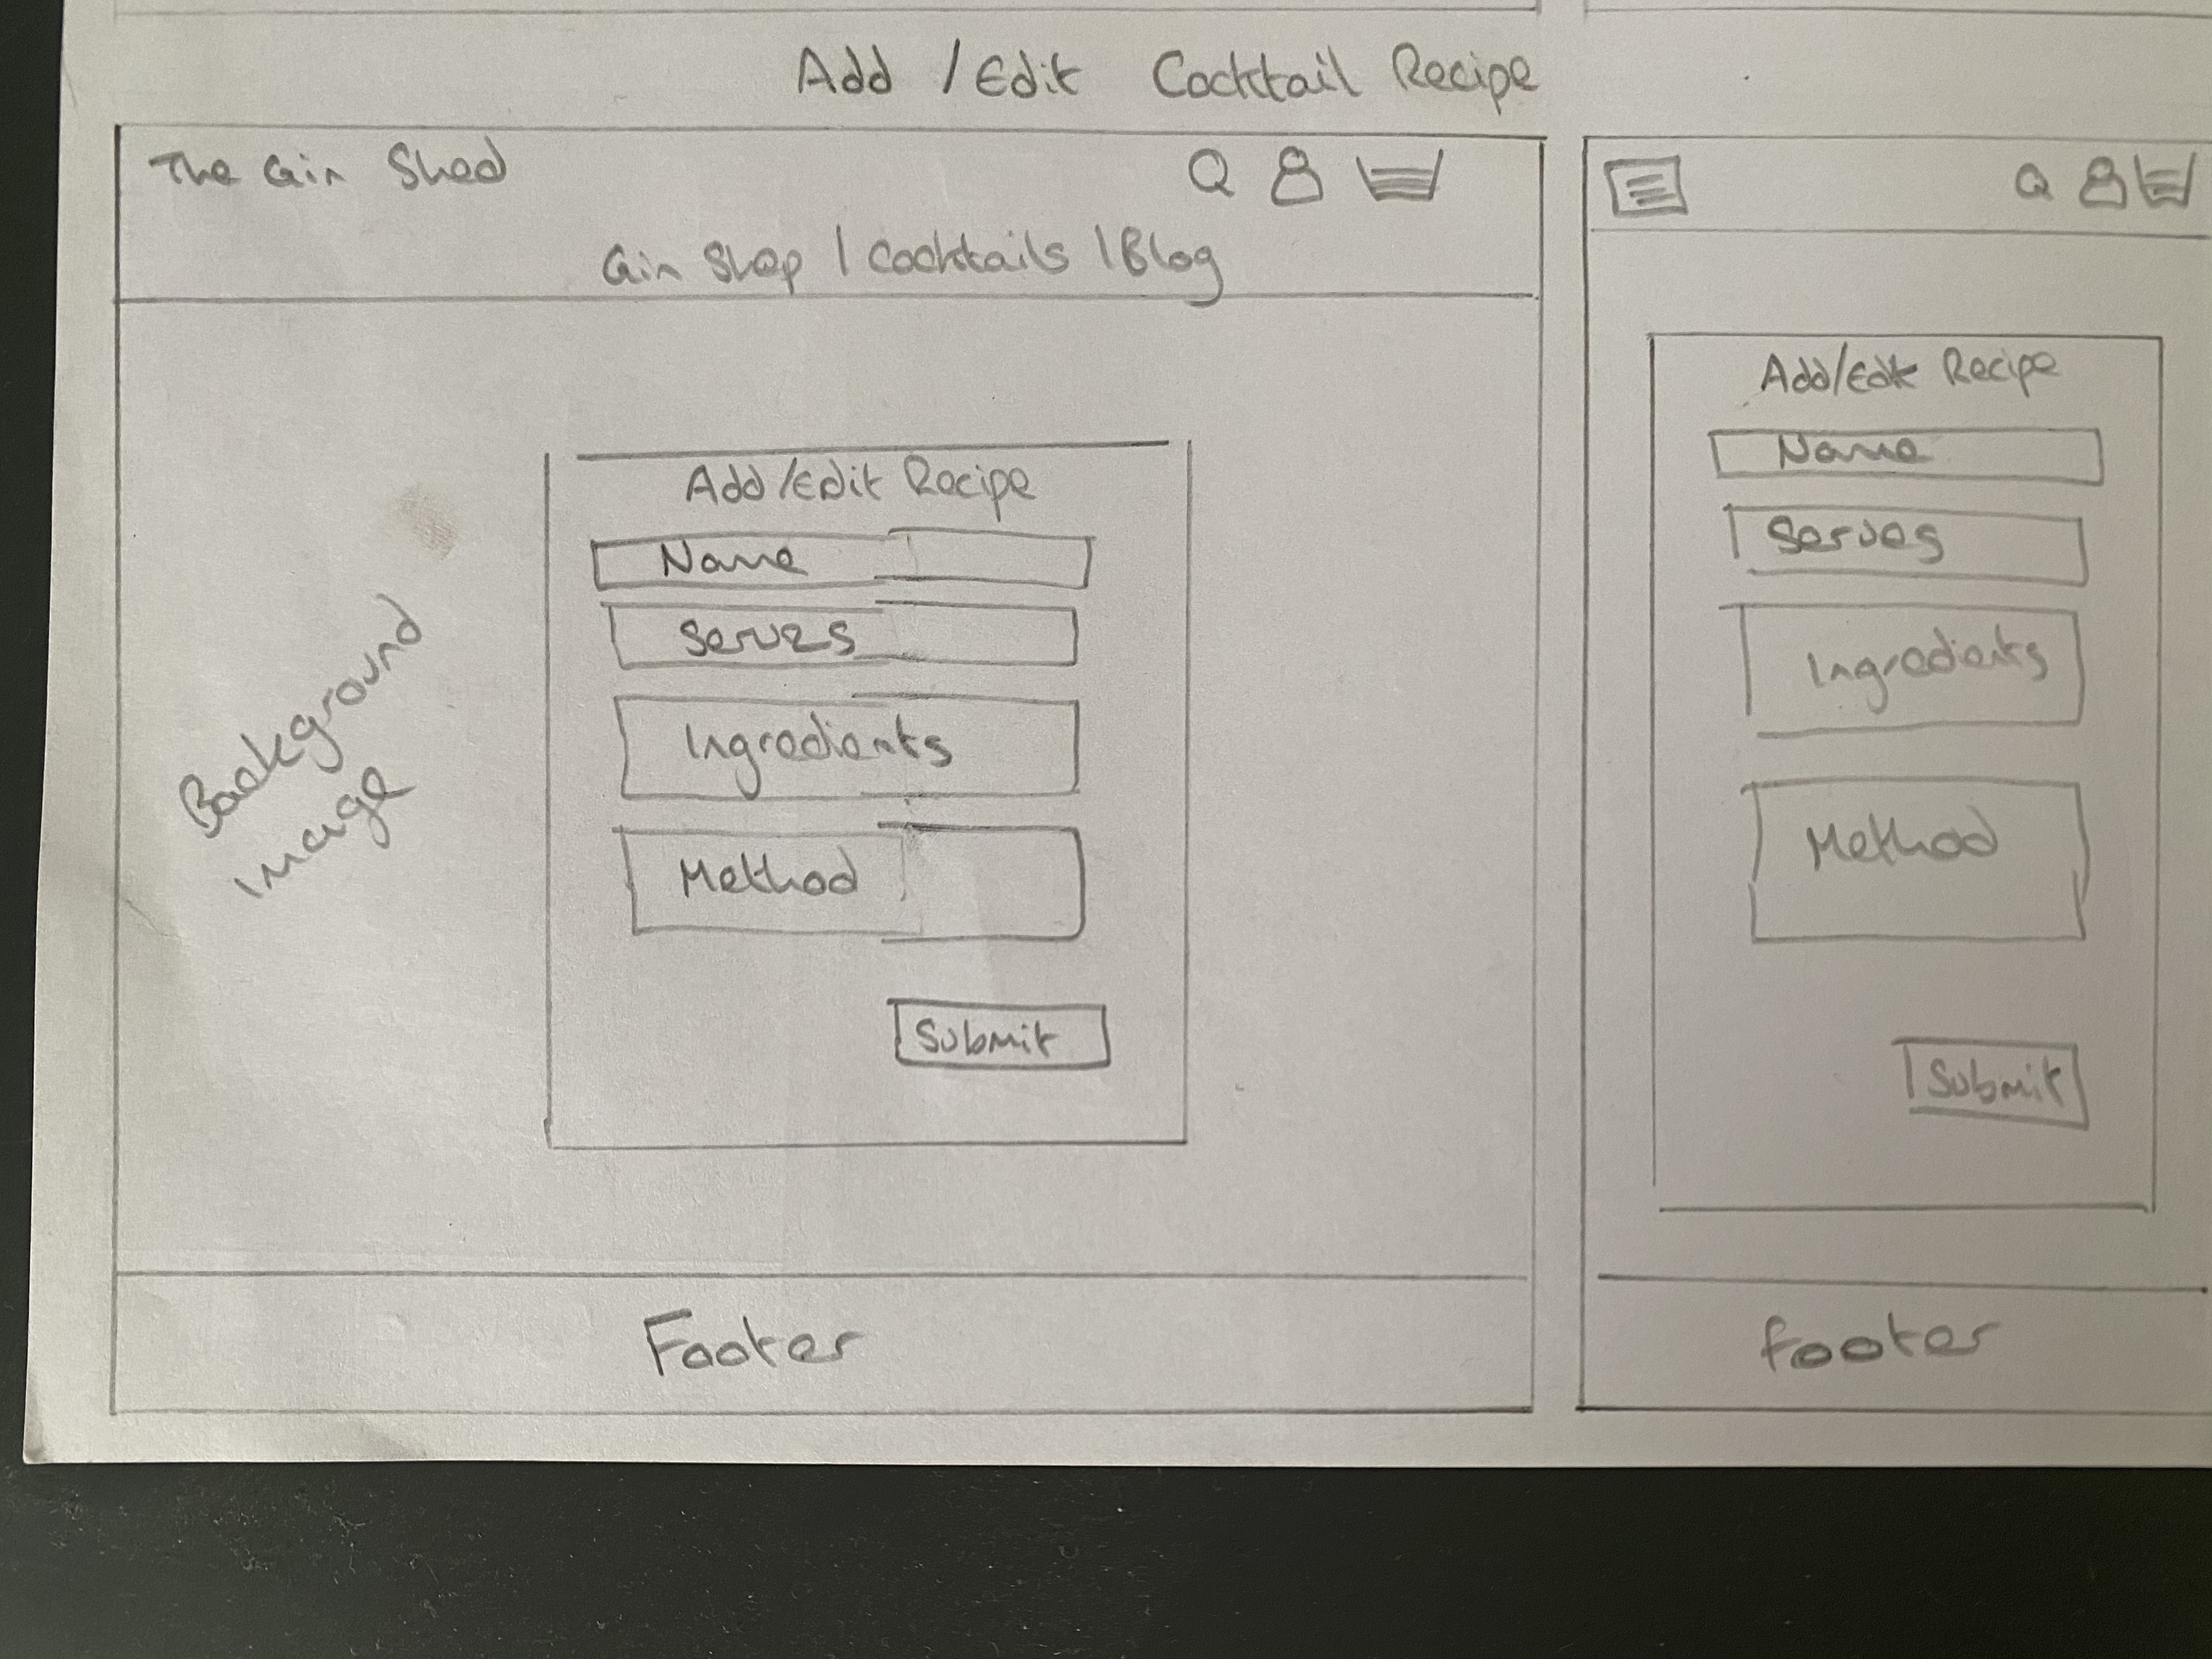 Add / Edit Cocktail Recipe
The Gin Shed
Gin Shop | Cocktails | Blog
Background
Image
Add/Edit Recipe
Name
Serves
Ingredients
Method
Submit
Footer
Add/Edit Recipe
Name
Serves
Ingredients
Method
Submit
footer